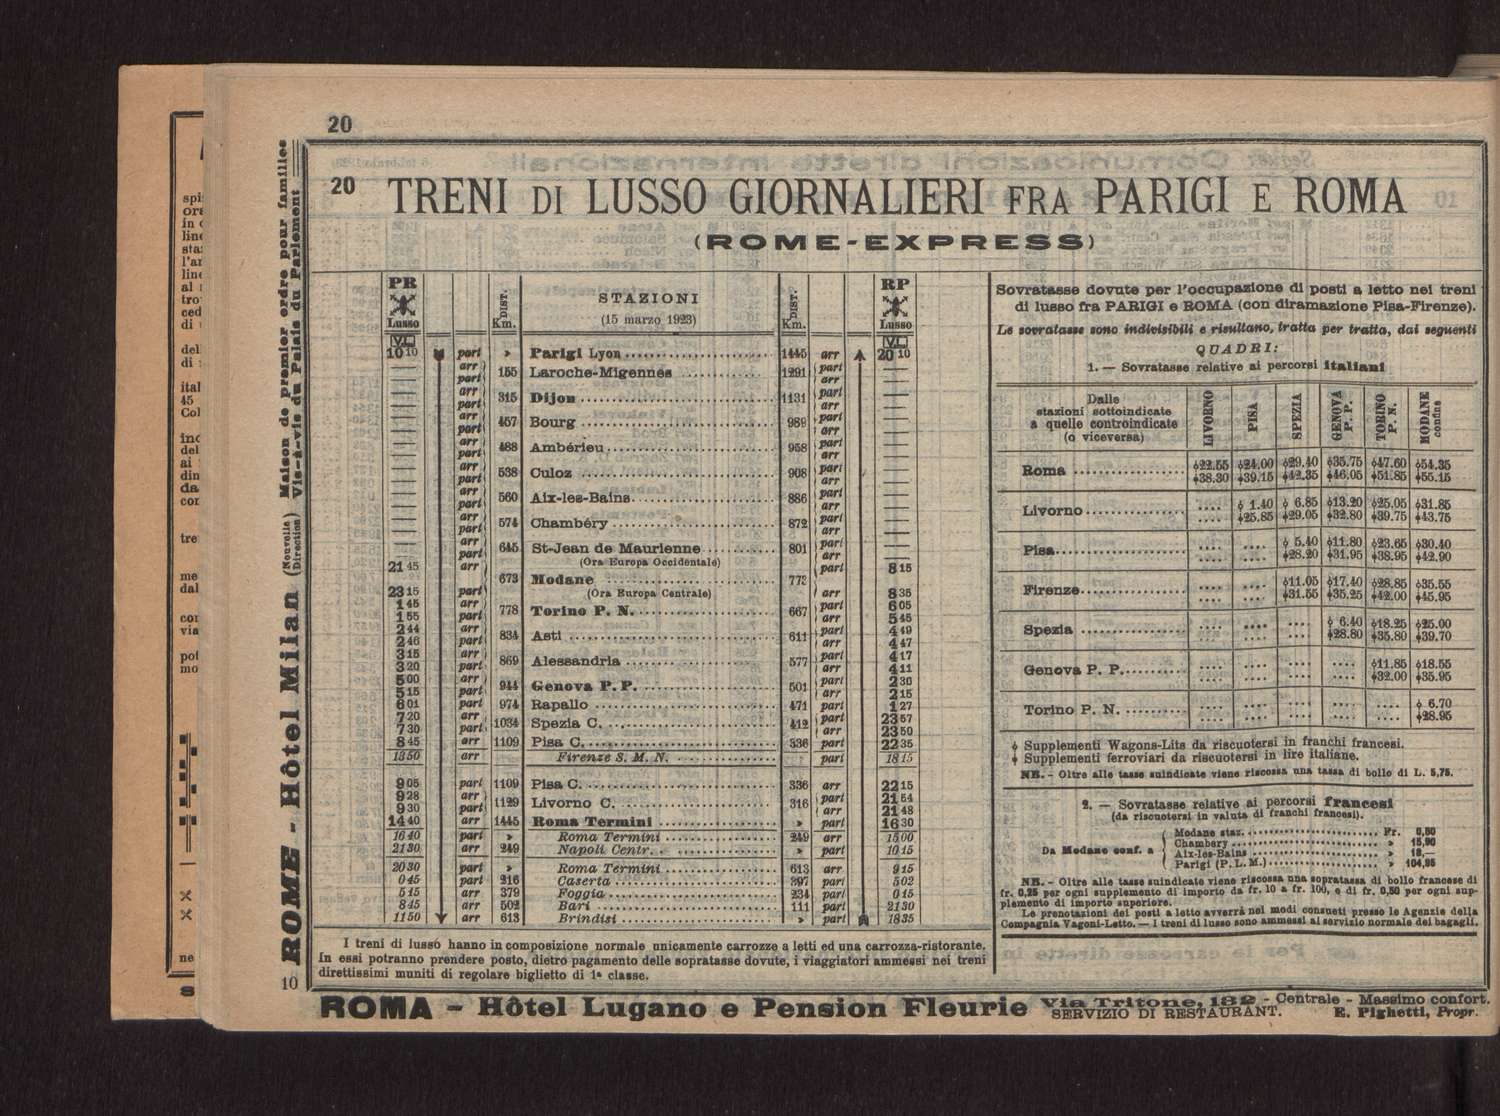 20
20 TRENI DI LUSSO GIORNALIERI FRA PARIGI E ROMA
(ROME-EXPRESS)
PR Lusso DIST. Km. STAZIONI (15 marzo 1923) DIST. Km. RP Lusso
V.L. V.L.
10 10 part » Parigi Lyon 1445 arr 20 10
— arr part 155 Laroche-Migennes 1291 part arr —
— arr part 315 Dijon 1131 part arr —
— arr part 457 Bourg 989 part arr —
— arr part 488 Ambérieu 958 part arr —
— arr part 538 Culoz 908 part arr —
— arr part 560 Aix-les-Bains 886 part arr —
— arr part 574 Chambéry 872 part arr —
— arr part 645 St-Jean de Maurienne 801 part arr —
(Ora Europa Occidentale)
21 45 arr part 8 15
673 Modane 773
23 15 part (Ora Europa Centrale) arr 8 35
1 45 arr part 6 05
1 55 part 778 Torino P. N. 667 arr 5 45
2 44 arr part 4 49
2 46 part 834 Asti 611 arr 4 47
3 15 arr part 4 17
3 20 part 869 Alessandria 577 arr 4 11
5 00 arr part 2 30
5 15 part 944 Genova P. P. 501 arr 2 15
6 01 part 974 Rapallo 471 part 1 27
7 20 arr part 23 57
7 30 part 1034 Spezia C. 412 arr 23 50
8 45 arr 1109 Pisa C. 336 part 22 35
13 50 arr Firenze S. M. N. part 18 15
9 05 part 1109 Pisa C. 336 arr 22 15
9 28 arr part 21 54
9 30 part 1129 Livorno C. 316 arr 21 48
14 40 arr 1445 Roma Termini » part 16 30
16 40 part » Roma Termini 249 arr 15 00
21 30 arr 249 Napoli Centr. » part 10 15
20 30 part » Roma Termini 613 arr 9 15
0 45 part 216 Caserta 397 part 5 02
5 15 arr 379 Foggia 234 part 0 45
8 45 arr 502 Bari 111 part 21 30
11 50 arr 613 Brindisi » part 18 35
I treni di lusso hanno in composizione normale unicamente carrozze a letti ed una carrozza-ristorante.
In essi potranno prendere posto, dietro pagamento delle sopratasse dovute, i viaggiatori ammessi nei treni
direttissimi muniti di regolare biglietto di 1ª classe.
Sovratasse dovute per l'occupazione di posti a letto nei treni
di lusso fra PARIGI e ROMA (con diramazione Pisa-Firenze).
Le sovratasse sono indivisibili e risultano, tratta per tratta, dai seguenti
QUADRI:
1. — Sovratasse relative ai percorsi italiani
Dalle stazioni sottoindicate a quelle controindicate (o viceversa) LIVORNO PISA SPEZIA GENOVA P. P. TORINO P. N. MODANE confine
Roma ϕ22.55 ϕ24.00 ϕ29.40 ϕ35.75 ϕ47.60 ϕ54.35
♦38.30 ♦39.15 ♦42.35 ♦46.05 ♦51.85 ♦55.15
Livorno .... ϕ 1.40 ϕ 6.85 ϕ13.20 ϕ25.05 ϕ31.85
.... ♦25.85 ♦29.05 ♦32.80 ♦39.75 ♦43.75
Pisa .... .... ϕ 5.40 ϕ11.80 ϕ23.65 ϕ30.40
.... .... ♦28.20 ♦31.95 ♦38.95 ♦42.90
Firenze .... .... ϕ11.05 ϕ17.40 ϕ28.85 ϕ35.55
.... .... ♦31.55 ♦35.25 ♦42.00 ♦45.95
Spezia .... .... .... ϕ 6.40 ϕ18.25 ϕ25.00
.... .... .... ♦28.80 ♦35.80 ♦39.70
Genova P. P. .... .... .... .... ϕ11.85 ϕ18.55
.... .... .... .... ♦32.00 ♦35.95
Torino P. N. .... .... .... .... .... ϕ 6.70
.... .... .... .... .... ♦28.95
ϕ Supplementi Wagons-Lits da riscuotersi in franchi francesi.
♦ Supplementi ferroviari da riscuotersi in lire italiane.
NB. - Oltre alle tasse suindicate viene riscossa una tassa di bollo di L. 5,75.
2. — Sovratasse relative ai percorsi francesi
(da riscuotersi in valuta di franchi francesi).
Da Modane conf. a
Modane staz. Fr. 0,50
Chambery » 15,90
Aix-les-Bains » 18,—
Parigi (P. L. M.) » 104,85
NB. - Oltre alle tasse suindicate viene riscossa una sopratassa di bollo francese di
fr. 0,25 per ogni supplemento di importo da fr. 10 a fr. 100, e di fr. 0,50 per ogni sup-
plemento di importo superiore.
Le prenotazioni dei posti a letto avverrà nei modi consueti presso le Agenzie della
Compagnia Vagoni-Letto. — I treni di lusso sono ammessi al servizio normale dei bagagli.
ROME - Hôtel Milan (Nouvelle Direction) Maison de premier ordre pour familles
Vis-à-vis du Palais du Parlement
10
ROMA - Hôtel Lugano e Pension Fleurie Via Tritone, 132 - Centrale - Massimo confort.
SERVIZIO DI RESTAURANT. E. Pighetti, Propr.